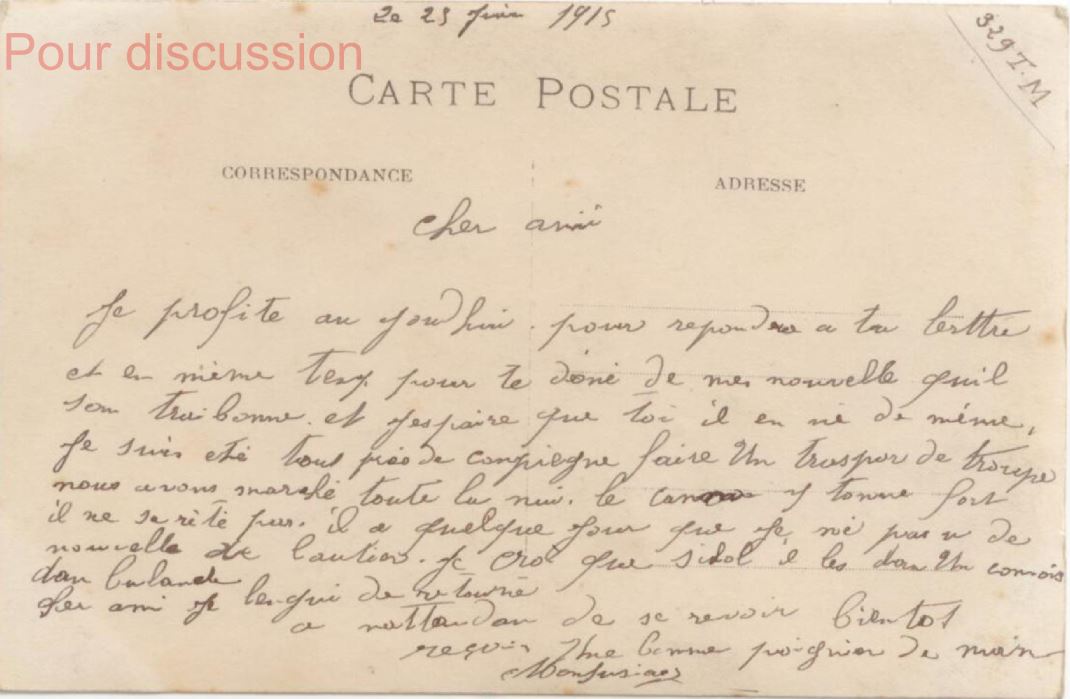 Le 25 Juin 1915
329 T.M
Pour discussion
CARTE POSTALE
CORRESPONDANCE
ADRESSE
cher ami
Je profite au jourdhui pour repondre a ta lerttre
et en mème temp pour te doné de mes nouvelle quil
son trai bonne et jespaire que toi il en né de même,
Je suis eté tout prés de compiegne faire Un traspor de troupe
nous avons marché toute la nui. le canon y tonne fort
il ne sa rète pas. il a quelque jour que je né pas u de
nouvelle de lautier. je croi que il les dan Un convoi
dan
cher ami je lengui de retourné
a nattandan de se revoir bientot
reçoir Une bonne poignier de main